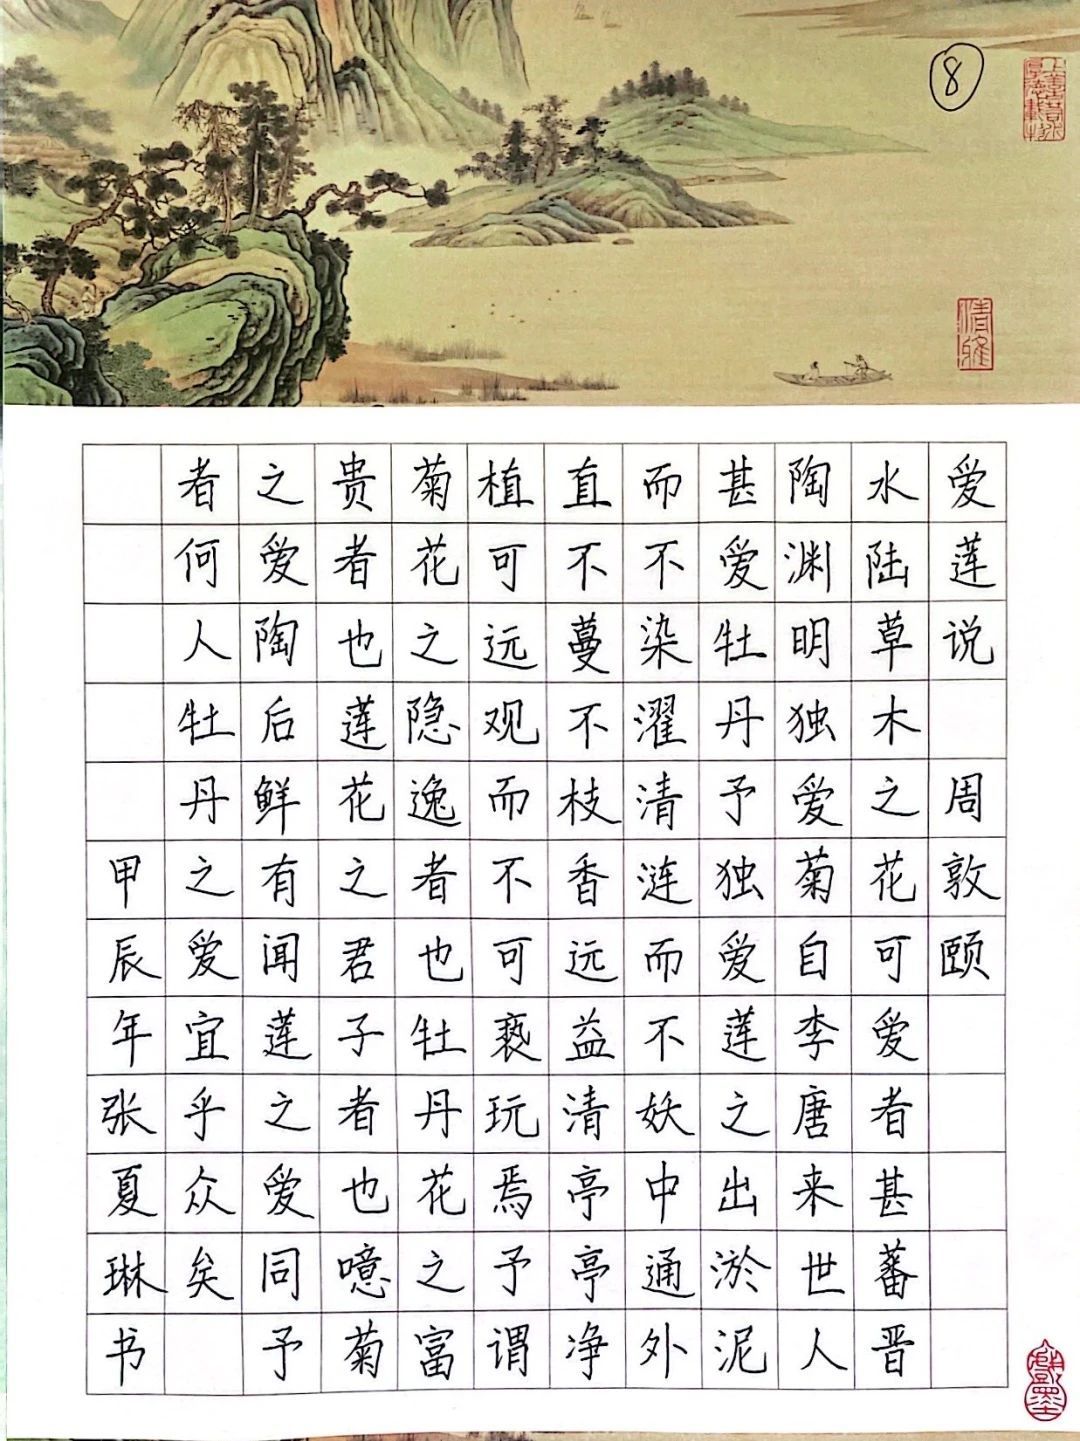 ⑧
上善若水
厚德载物
清雅
爱莲说 周敦颐
水陆草木之花可爱者甚蕃晋
陶渊明独爱菊自李唐来世人
甚爱牡丹予独爱莲之出淤泥
而不染濯清涟而不妖中通外
直不蔓不枝香远益清亭亭净
植可远观而不可亵玩焉予谓
菊花之隐逸者也牡丹花之富
贵者也莲花之君子者也噫菊
之爱陶后鲜有闻莲之爱同予
者何人牡丹之爱宜乎众矣
甲辰年张夏琳书